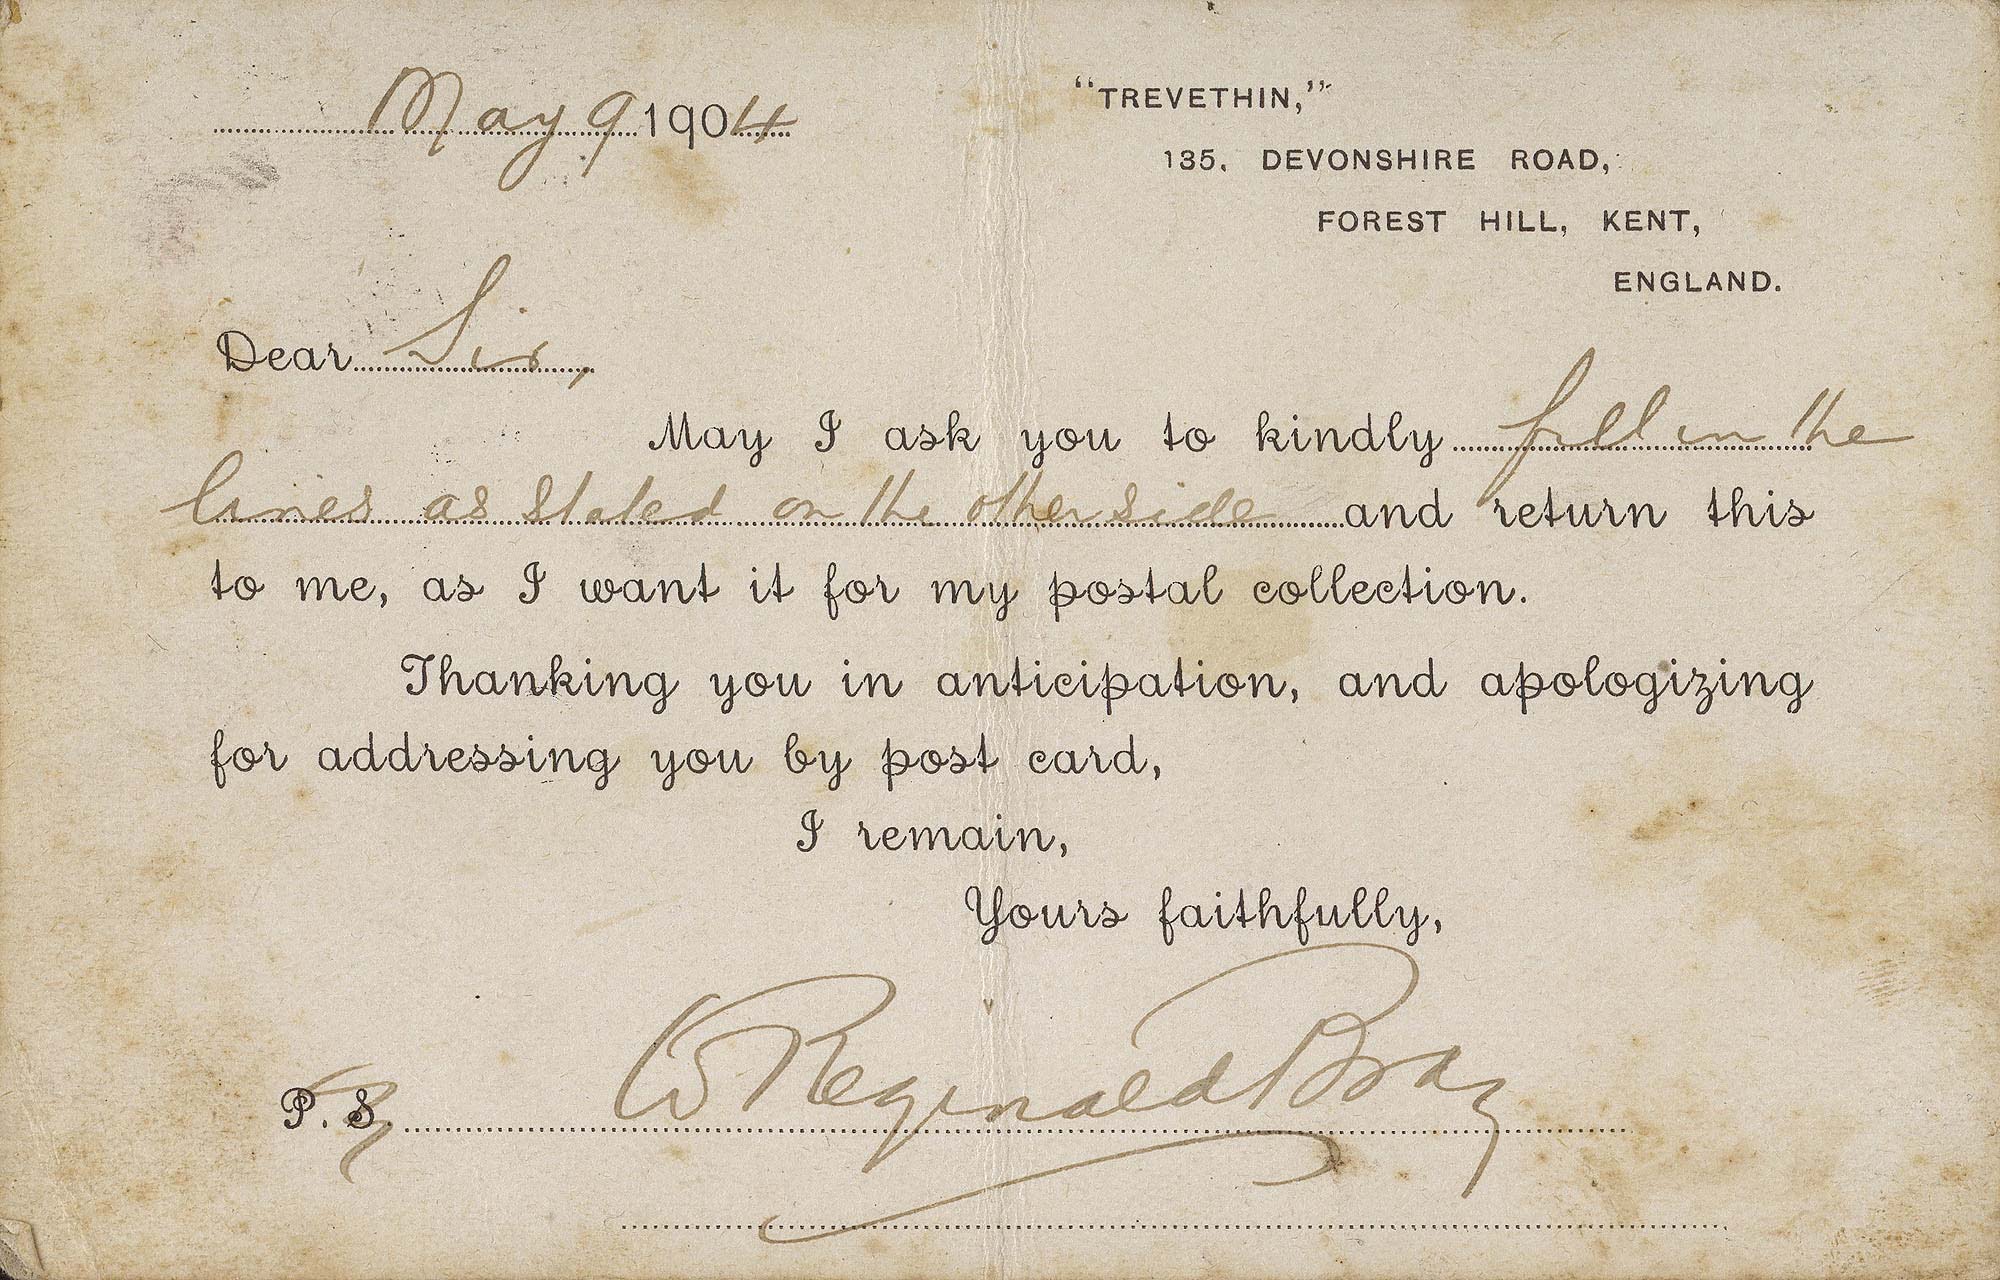 May 9 1904
"TREVETHIN,"
135, DEVONSHIRE ROAD,
FOREST HILL, KENT,
ENGLAND.
Dear Sir,
May I ask you to kindly fill in the
lines as stated on the other side and return this
to me, as I want it for my postal collection.
Thanking you in anticipation, and apologizing
for addressing you by post card,
I remain,
Yours faithfully,
W Reginald Bray
P. S.